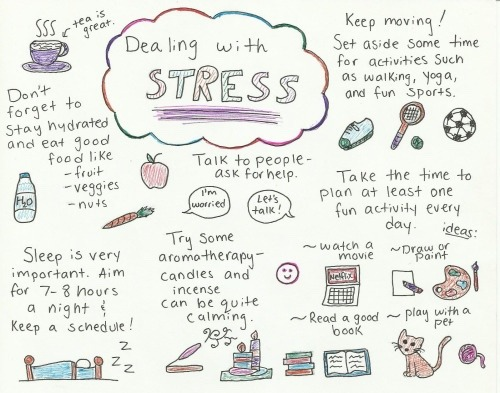 tea is
great.
Dealing with
STRESS
Keep moving!
Set aside some time
for activities such
as walking, yoga,
and fun sports.
Don't
forget to
stay hydrated
and eat good
food like
- fruit
- veggies
- nuts
H2O
Talk to people-
ask for help.
I'm
worried
Let's
talk!
Take the time to
plan at least one
fun activity every
day.
ideas:
~ watch a
movie
Netflix
~ Draw or
paint
~ Read a good
book
~ play with a
pet
Try some
aromatherapy-
candles and
incense
can be quite
calming.
Sleep is very
important. Aim
for 7-8 hours
a night &
keep a schedule!
z
z
z